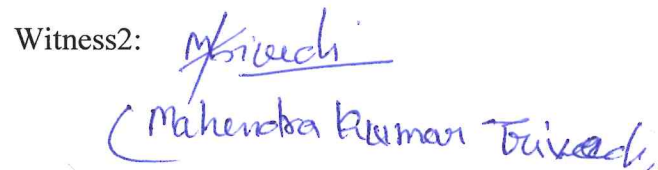 Witness2: MTrivedi
(Mahendra Kumar Trivedi,